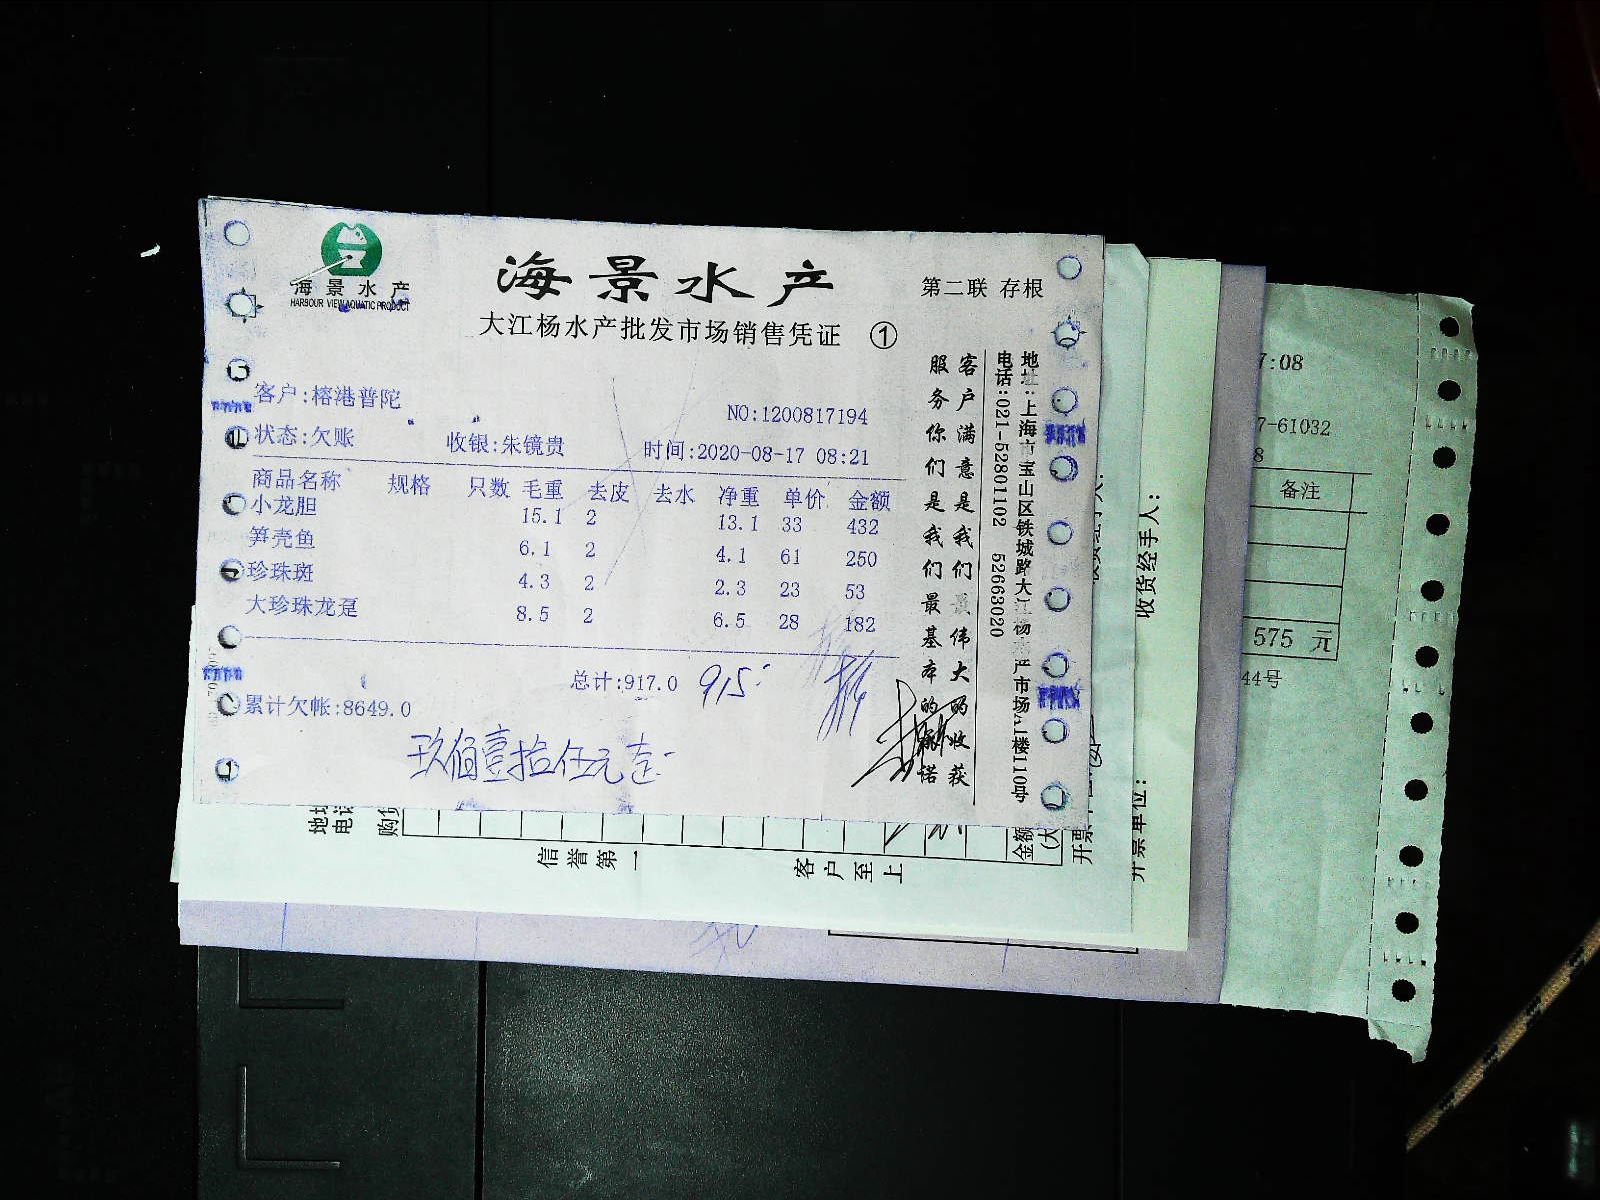 海景水产
HARBOUR VIEW AQUATIC PRODUCT
海景水产
第二联 存根
大江杨水产批发市场销售凭证 ①
客户:榕港普陀
NO:1200817194
状态:欠账 收银:朱镜贵 时间:2020-08-17 08:21
商品名称 规格 只数 毛重 去皮 去水 净重 单价 金额
小龙胆 15.1 2 13.1 33 432
笋壳鱼 6.1 2 4.1 61 250
珍珠斑 4.3 2 2.3 23 53
大珍珠龙趸 8.5 2 6.5 28 182
总计:917.0 915
累计欠帐:8649.0
玖佰壹拾伍元
客户满意是我们最伟大的收获
服务你们是我们最基本的承诺
地址:上海市宝山区铁城路大江杨水产市场A1楼110号
电话:021-52801102 52663020
地址
电话
购货
信誉第一
客户至上
金额
(大
开票
收货经手人:
开票单位:
7:08
7-61032
8
备注
575 元
44号